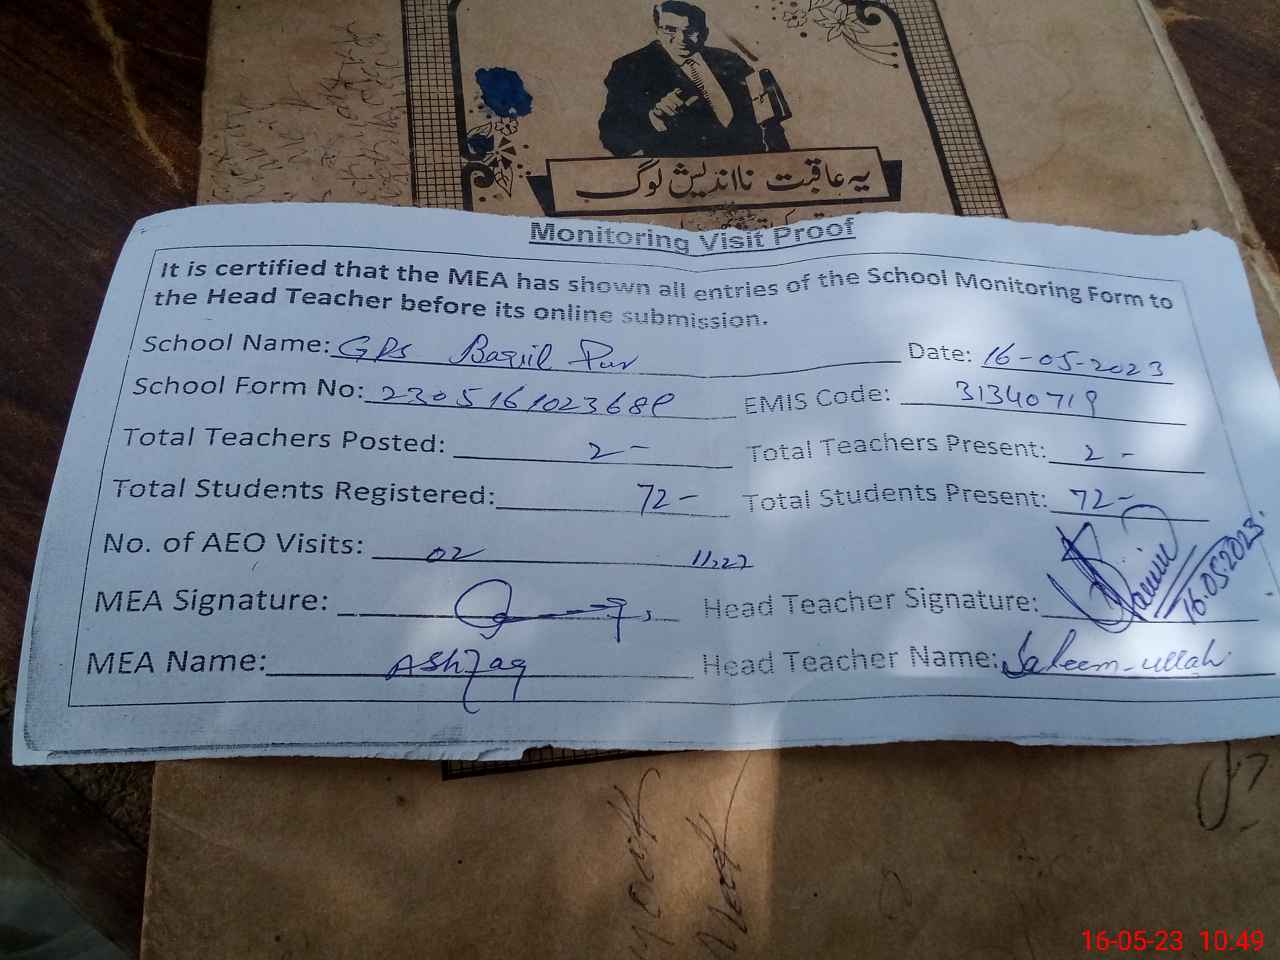 یہ عاقبت نااندیش لوگ
Monitoring Visit Proof
It is certified that the MEA has shown all entries of the School Monitoring Form to
the Head Teacher before its online submission.
School Name: GPS Pur Date: 16-05-2023
School Form No: EMIS Code: 31340719
Total Teachers Posted: 2- Total Teachers Present: 2-
Total Students Registered: 72- Total Students Present: 72-
No. of AEO Visits: 02
MEA Signature: Head Teacher Signature: 16.05.2023.
MEA Name: AShfaq Head Teacher Name: Saleem-ullah
16-05-23 10:49